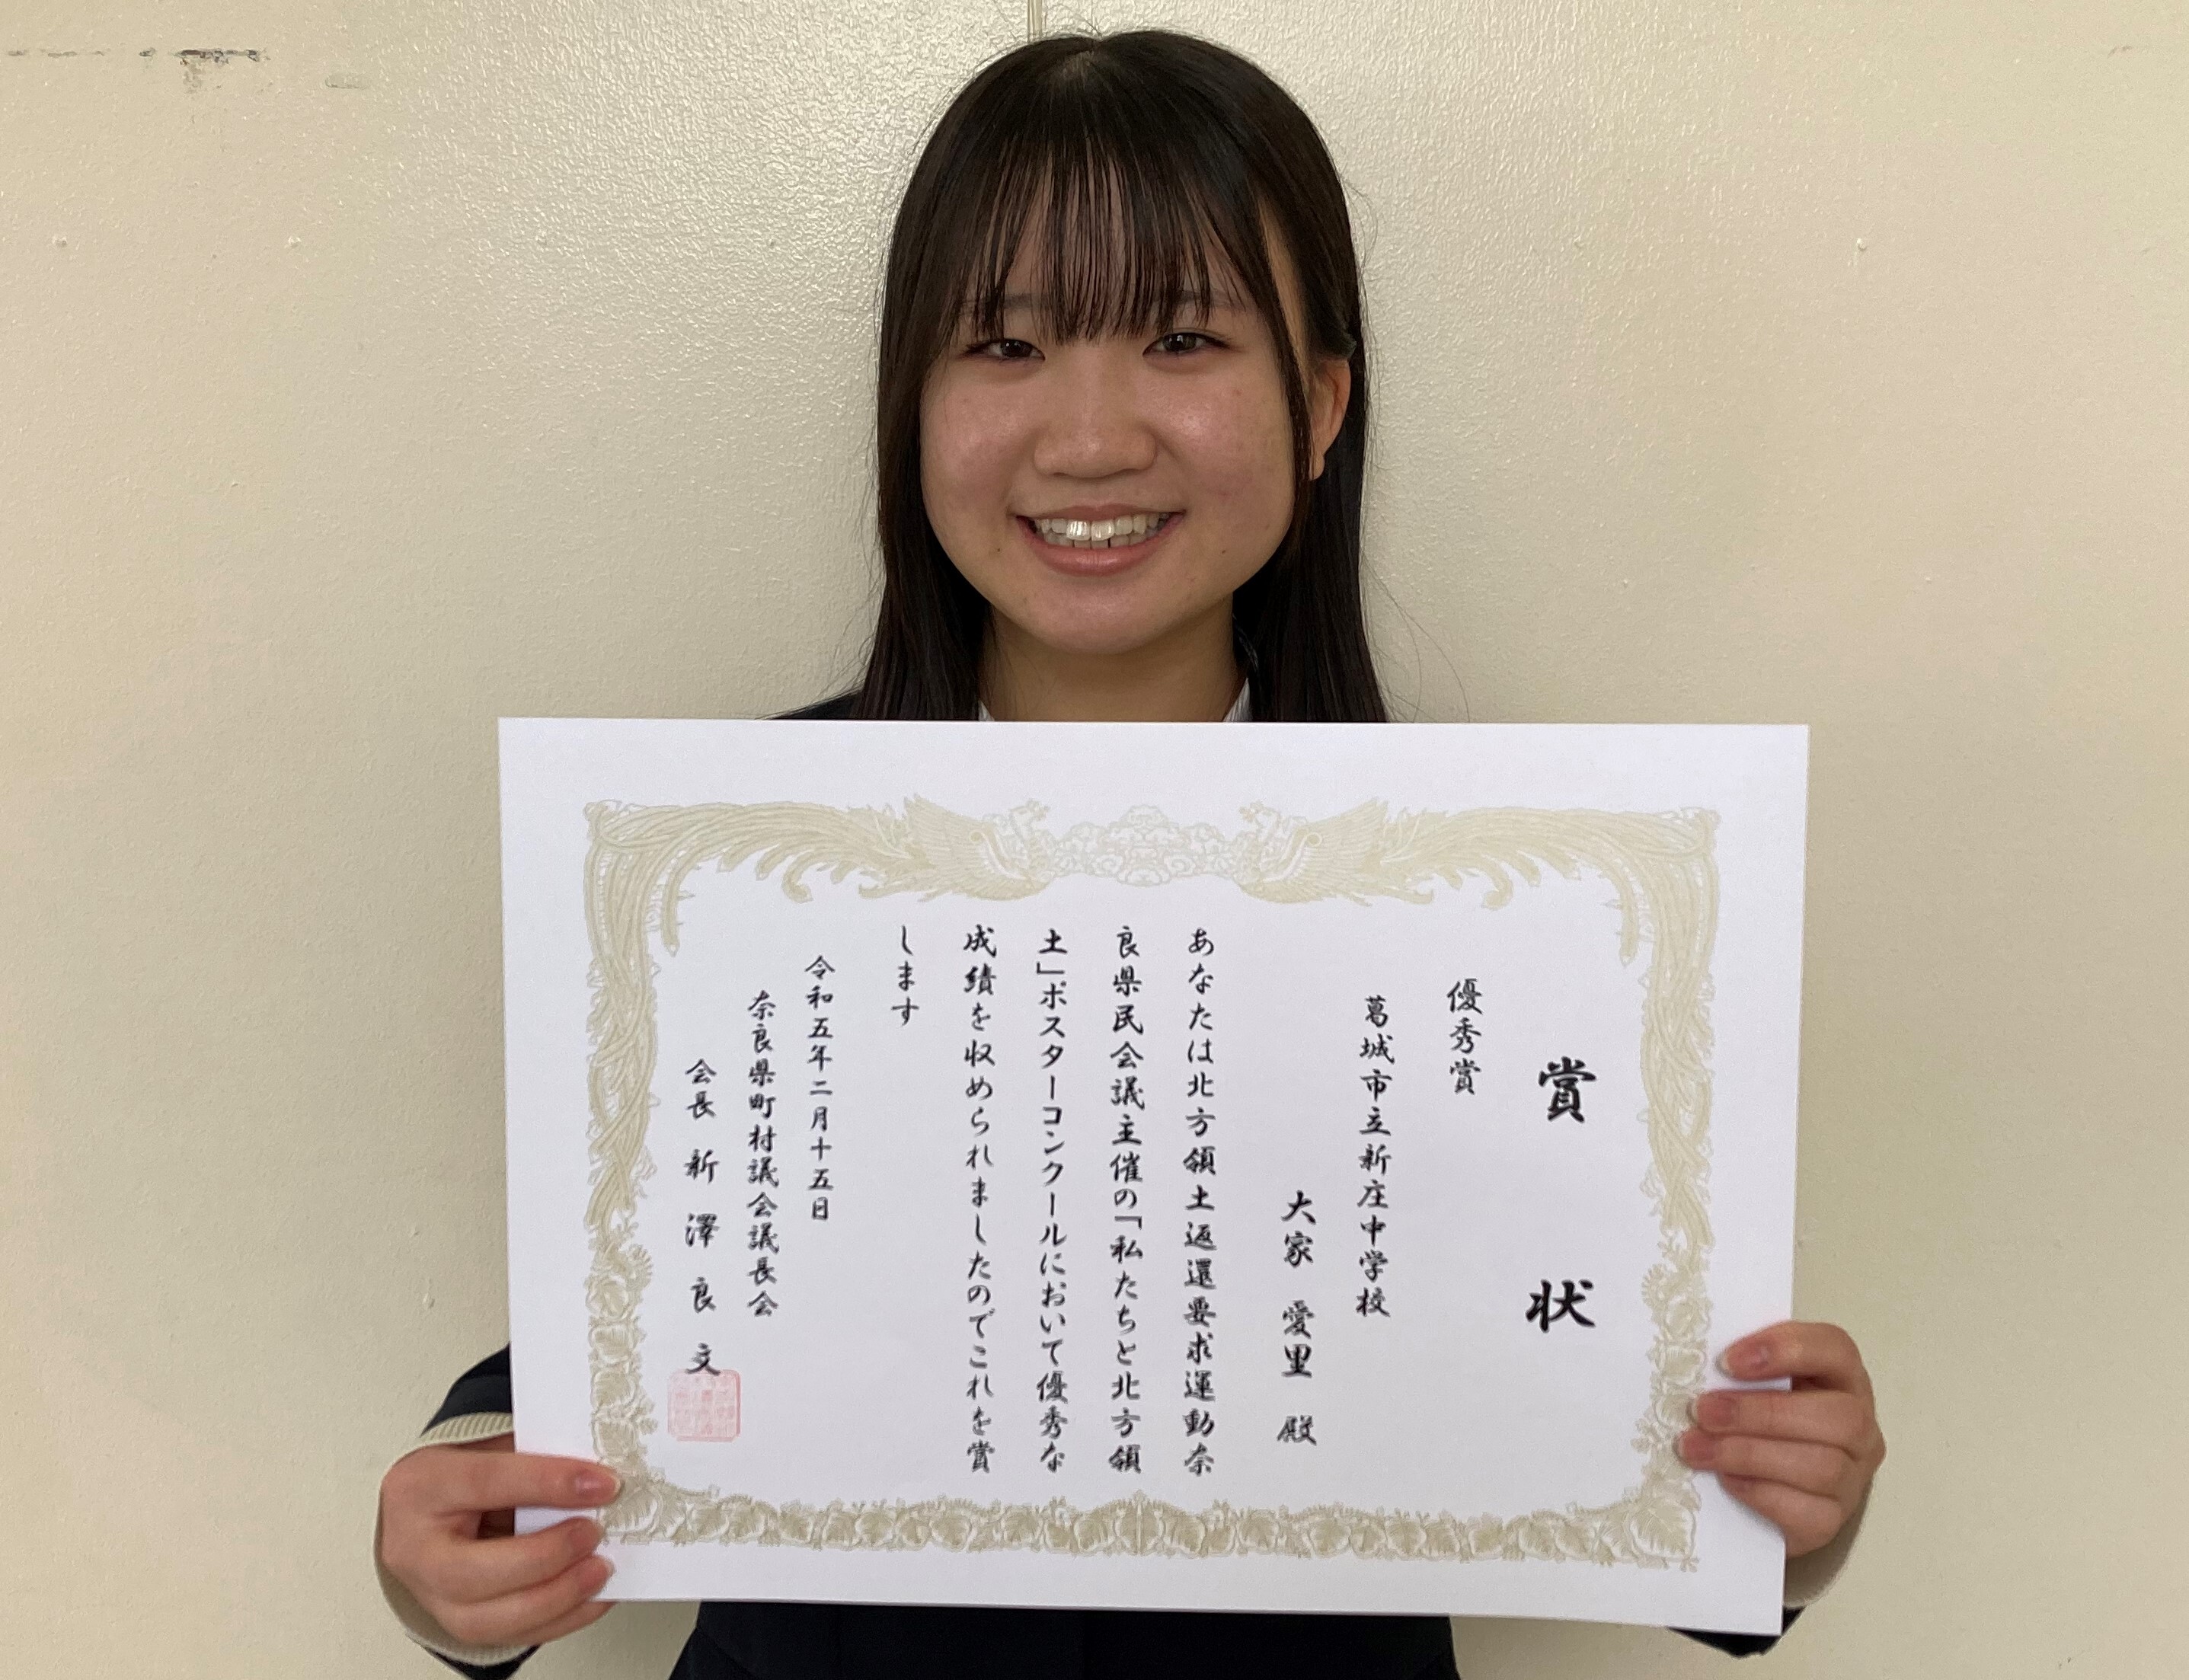 賞状
優秀賞
葛城市立新庄中学校
大家 愛里 殿
あなたは北方領土返還要求運動奈
良県民会議主催の「私たちと北方領
土」ポスターコンクールにおいて優秀な
成績を収められましたのでこれを賞
します
令和五年二月十五日
奈良県町村議会議長会
会長 新澤良文